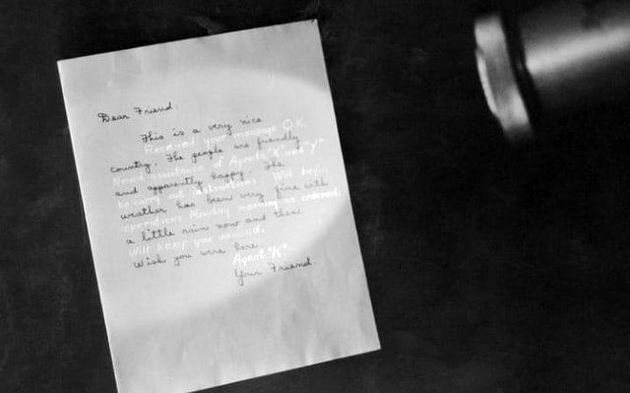 Dear Friend:
This is a very nice
Received your message O.K.
country. The people are friendly
Need assistance of Agents "X" and "Y"
and apparently happy. The
to carry out instructions. Will begin
weather has been very fine with
operations Monday morning as ordered.
a little rain now and then
Will keep you advised.
Wish you were here.
Agent "K"
Your Friend.